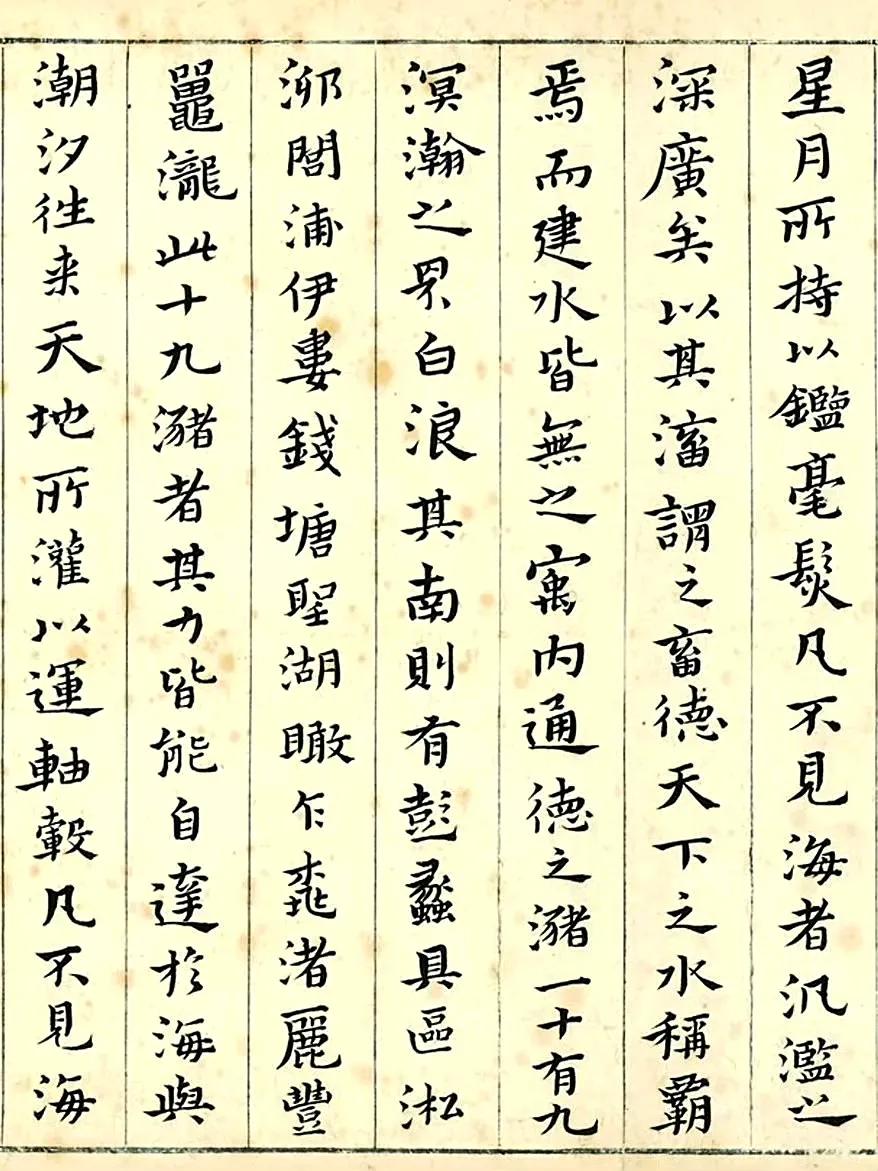 星月所持以鑑毫髮凡不見海者汎濫之
深廣矣以其滀謂之畜德天下之水稱霸
焉而建水皆無之寓内通德之瀦一十有九
溟瀚之白浪其南則有彭蠡具區淞
泖浦伊婁錢塘聖湖瞰乍桃渚麗豐
鼉瀧此十九瀦者其力皆能自達於海與
潮汐往来天地所灌以運軸轂凡不見海